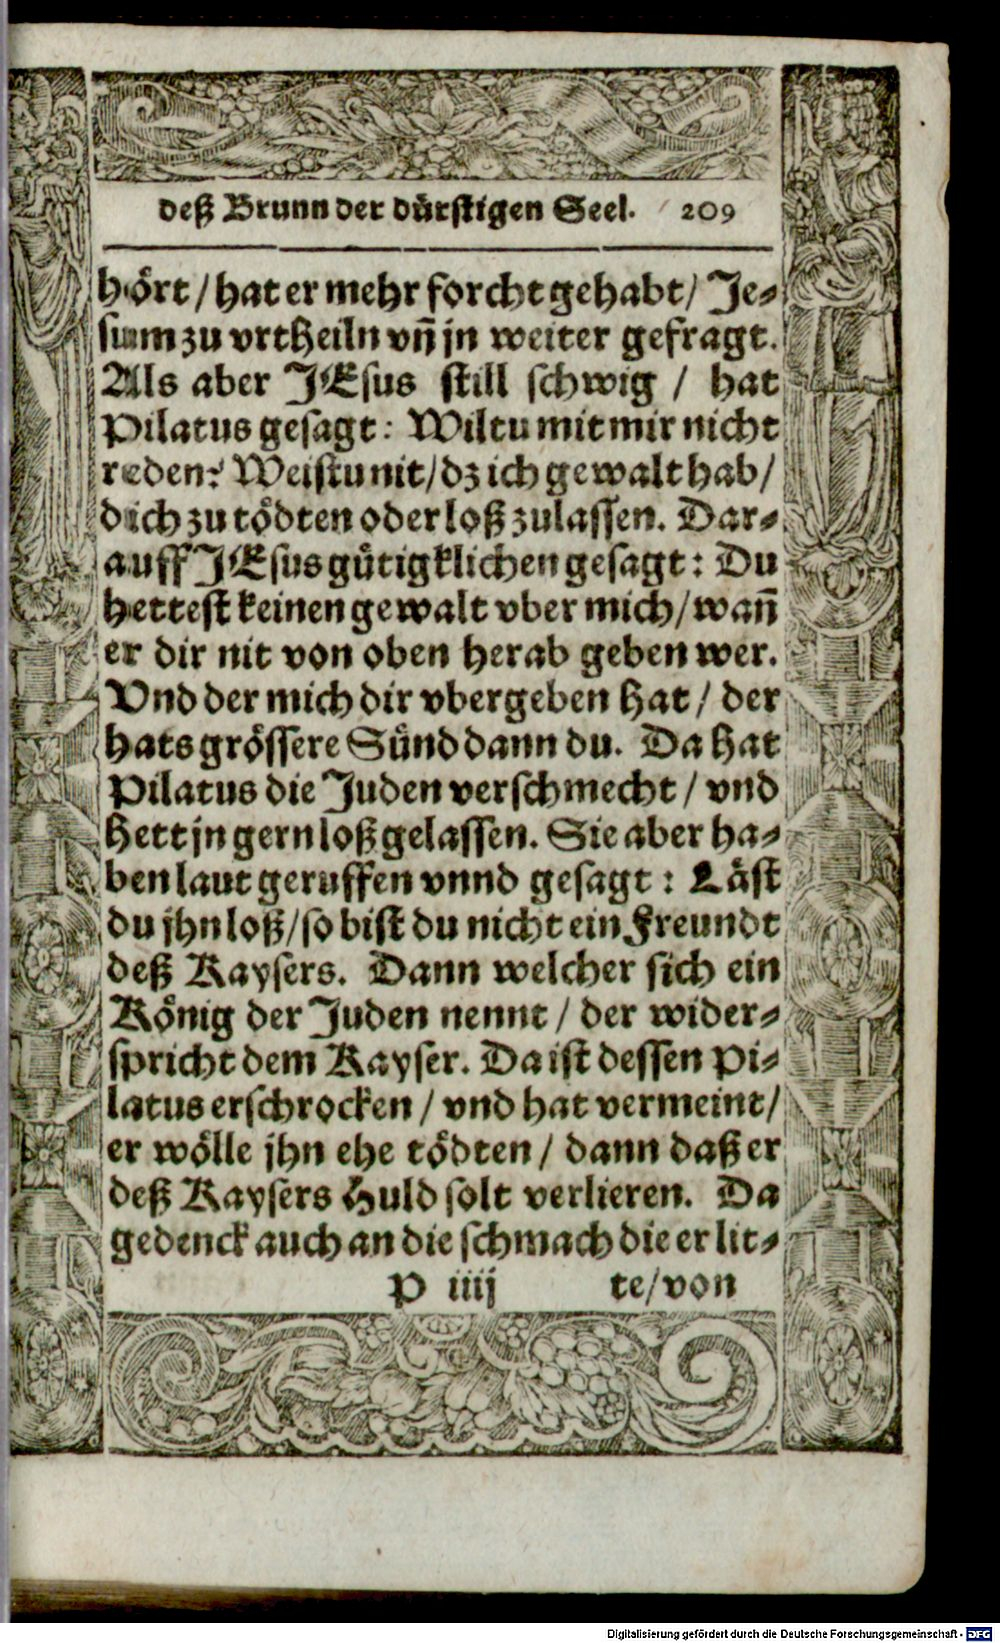 deß Brunn der dürstigen Seel. 209
hört / hat er mehr forcht gehabt / Je-
sum zu vrtheiln vñ jn weiter gefragt.
Als aber JEsus still schwig / hat
Pilatus gesagt: Wiltu mit mir nicht
reden? Weistu nit / dz ich gewalt hab /
dich zu tödten oder loß zulassen. Dar-
auff JEsus gütigklichen gesagt: Du
hettest keinen gewalt vber mich / wañ
er dir nit von oben herab geben wer.
Vnd der mich dir vbergeben hat / der
hats grössere Sünd dann du. Da hat
Pilatus die Juden verschmecht / vnd
hett jn gern loß gelassen. Sie aber ha-
ben laut geruffen vnnd gesagt: Läst
du jhn loß / so bist du nicht ein Freundt
deß Kaysers. Dann welcher sich ein
König der Juden nennt / der wider-
spricht dem Kayser. Da ist dessen Pi-
latus erschrocken / vnd hat vermeint /
er wölle jhn ehe tödten / dann daß er
deß Kaysers Huld solt verlieren. Da
gedenck auch an die schmach die er lit-
P iiij te / von
Digitalisierung gefördert durch die Deutsche Forschungsgemeinschaft - DFG